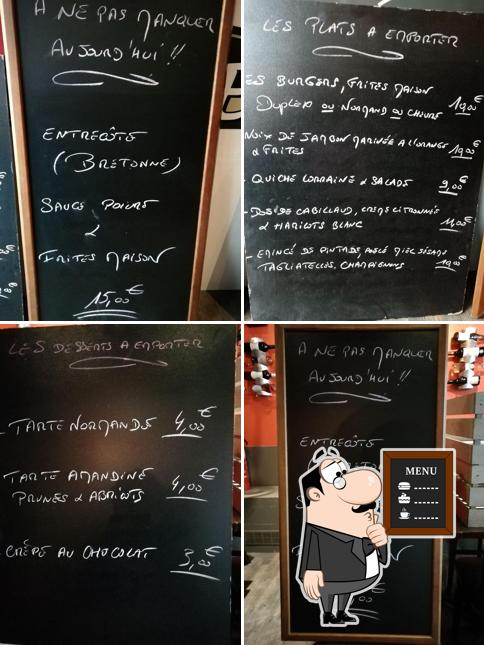 A NE PAS MANQUER
AUJOURD'HUI !!
ENTRECÔTE
(BRETONNE)
SAUCE POIVRE
&
FRITES MAISON
15,00€
LES PLATS A EMPORTER
ES BURGERS, FRITES MAISON
DUPLEX OU NORMAND OU CHEVRE 10,00€
NOIX DE JAMBON MARINÉE A L'ORANGE
& FRITES 10,00€
- QUICHE LORRAINE & SALADE 9,00€
- DOS DE CABILLAUD, CREME CITRONNÉE
& HARICOTS BLANC 11,00€
- EMINCÉ DE PINTADE, MIEL SÉSAME
TAGLIATELLES, CHAMPIGNONS 10,00€
LES DESSERTS A EMPORTER
- TARTE NORMANDE 4,00€
TARTE AMANDINE
PRUNES & ABRICOTS 4,00€
- CRÊPE AU CHOCOLAT 3,00€
A NE PAS MANQUER
AUJOURD'HUI !!
ENTRECÔTE
MENU